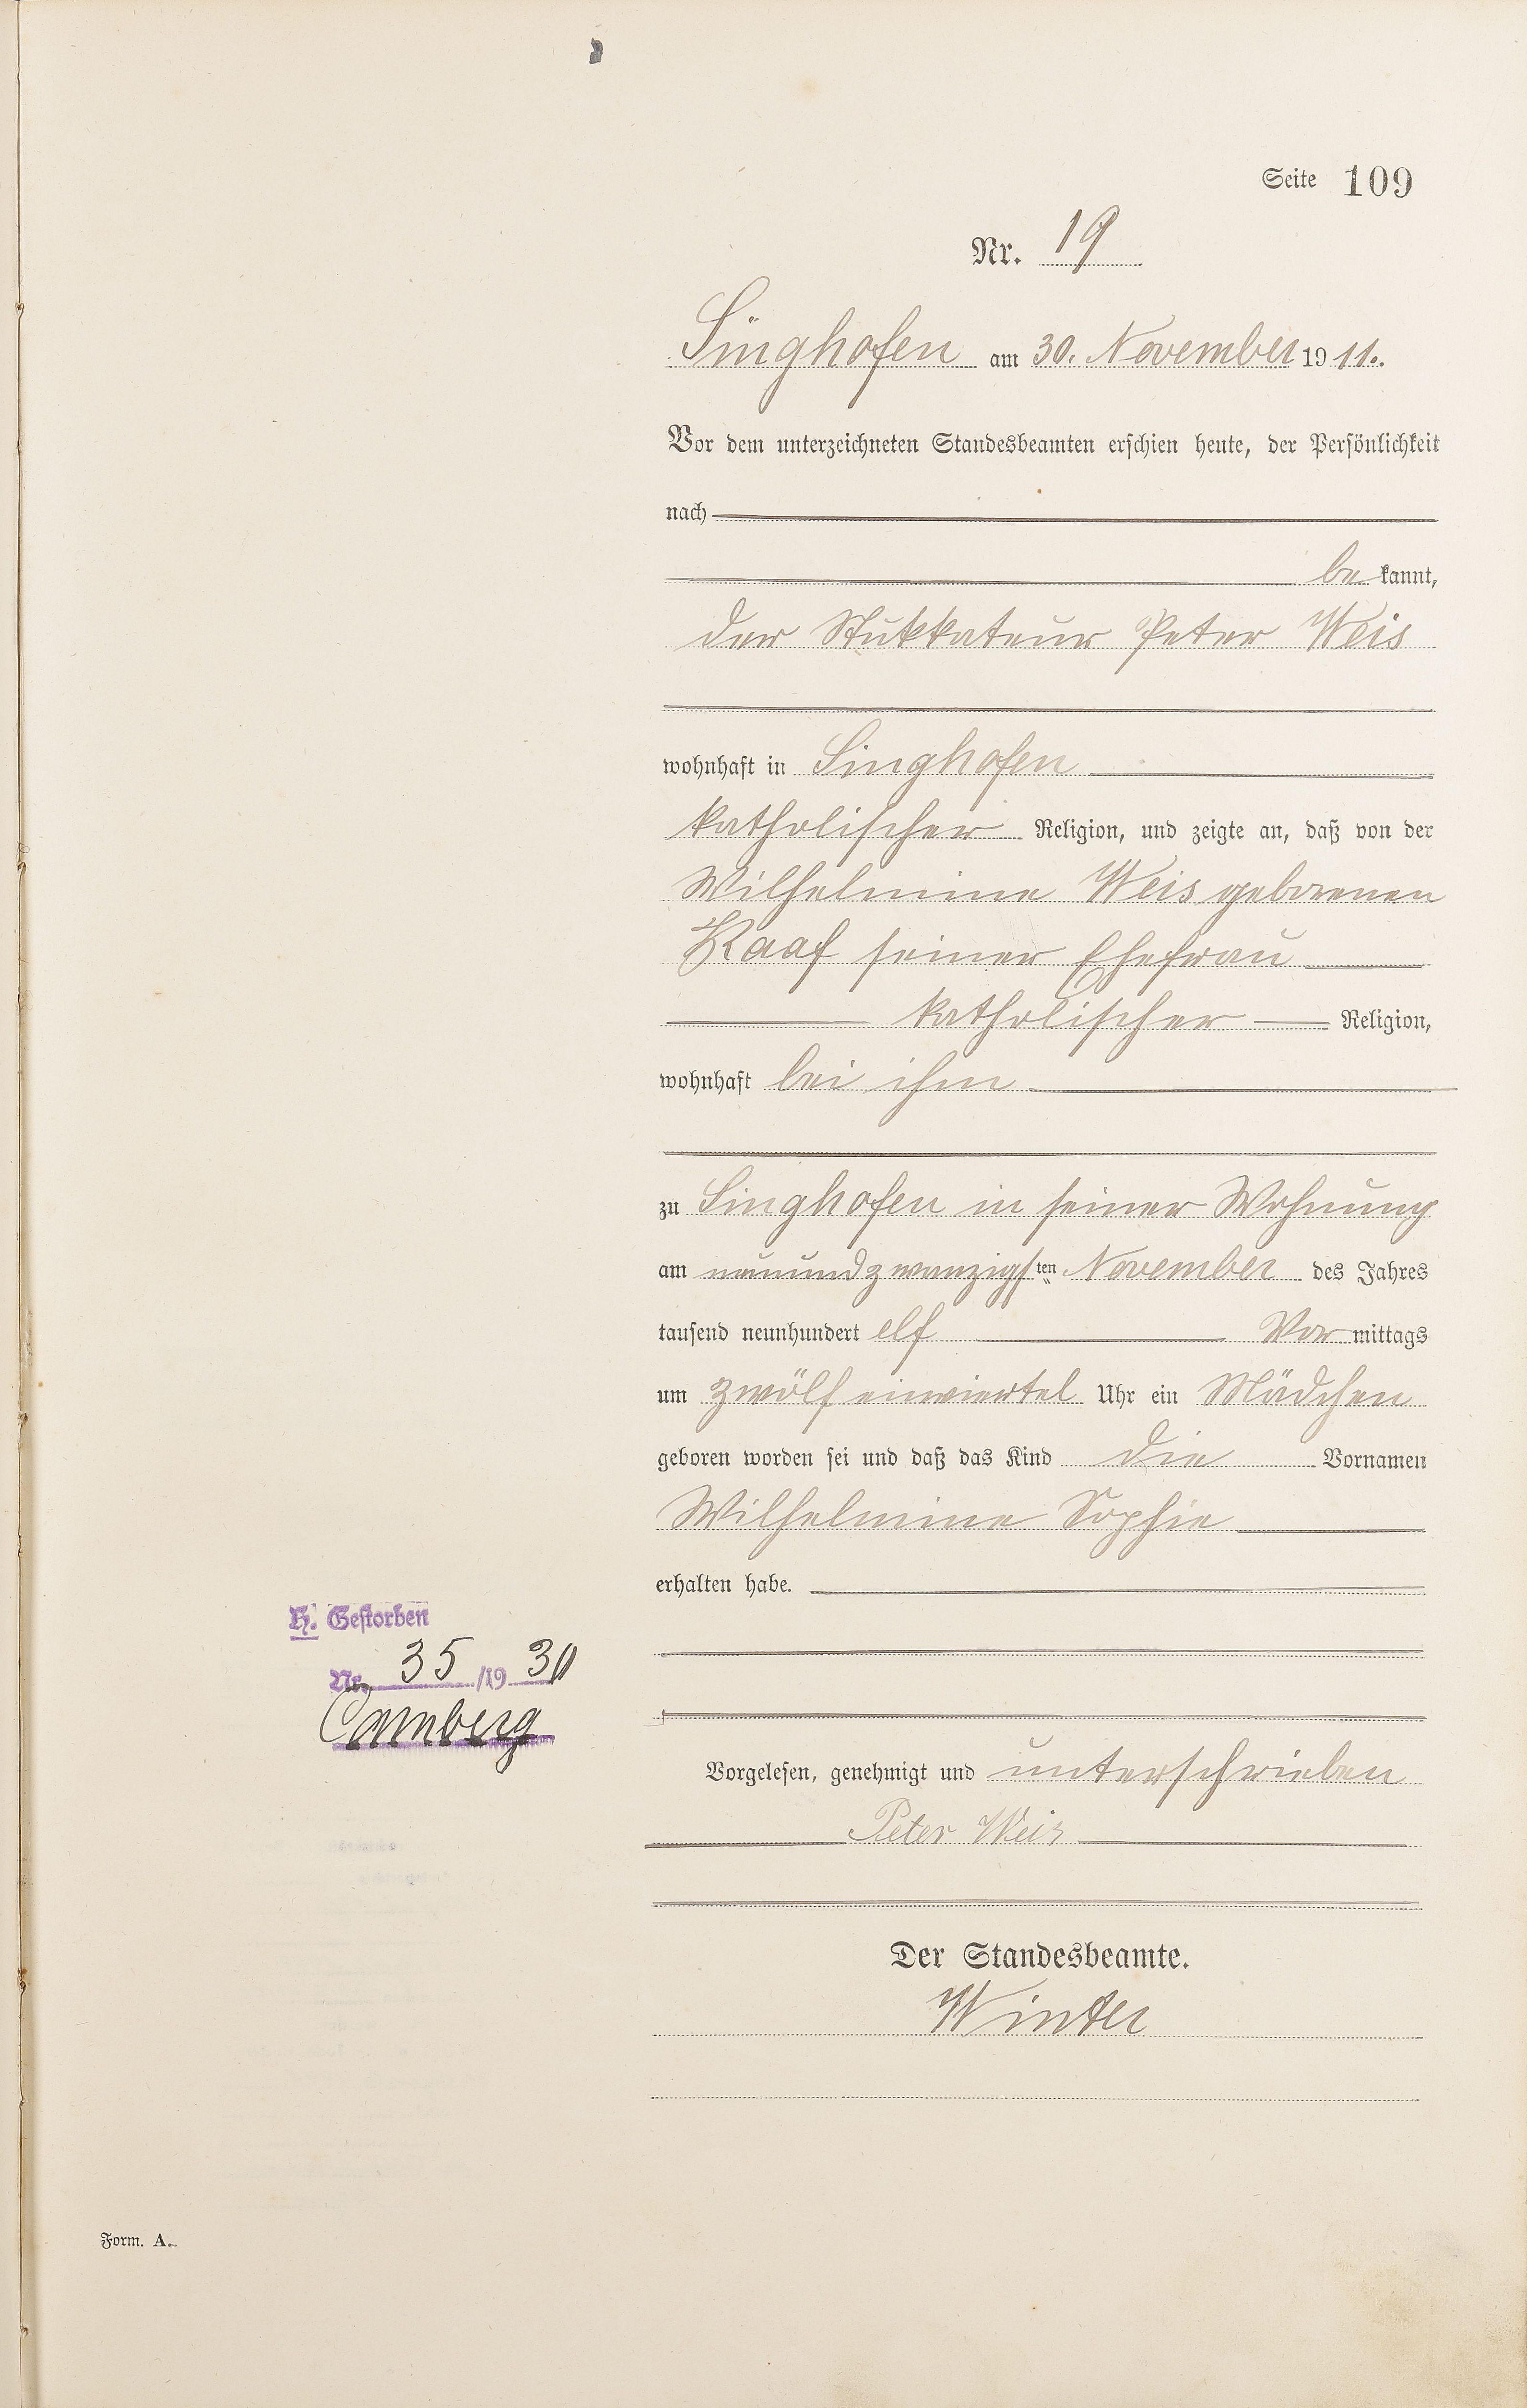 Seite 109
Nr. 19
Singhofen am 30. November 1911.
Vor dem unterzeichneten Standesbeamten erschien heute, der Persönlichkeit
nach
be kannt,
der Stukkateur Peter Weis
wohnhaft in Singhofen
katholischer Religion, und zeigte an, daß von der
Wilhelmine Weis geborenen
Raaf seiner Ehefrau
katholischer Religion,
wohnhaft bei ihm
zu Singhofen in seiner Wohnung
am neunundzwanzigsten November des Jahres
tausend neunhundert elf Vormittags
um zwölf einviertel Uhr ein Mädchen
geboren worden sei und daß das Kind die Vornamen
Wilhelmine Sophie
erhalten habe.
H. Gestorben
Nr. 35/19
Camberg
Vorgelesen, genehmigt und unterschrieben
Peter Weis
Der Standesbeamte.
Winter
Form. A.